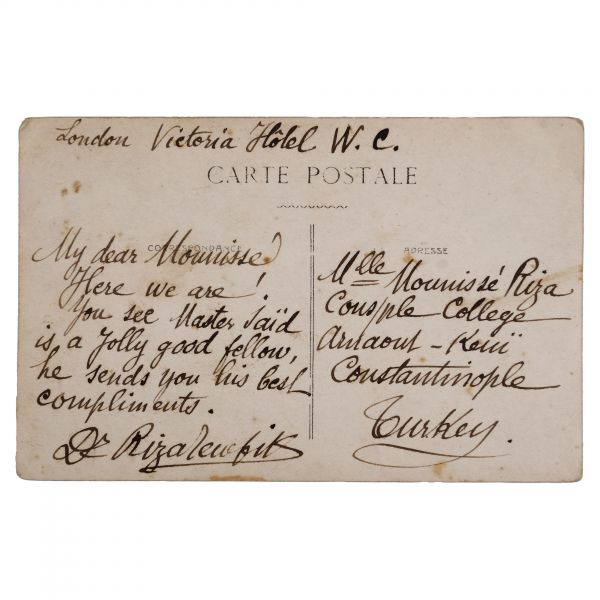 London Victoria Hôtel W. C.
CARTE POSTALE
CORRESPONDANCE
My dear Mounissé
Here we are!
You see Master Saïd
is a Jolly good fellow,
he sends you his best
compliments.
Dr Riza Tewfik
ADRESSE
Mlle Mounissé Riza
Cons/ple College
Arnaout - Keuï
Constantinople
Turkey.